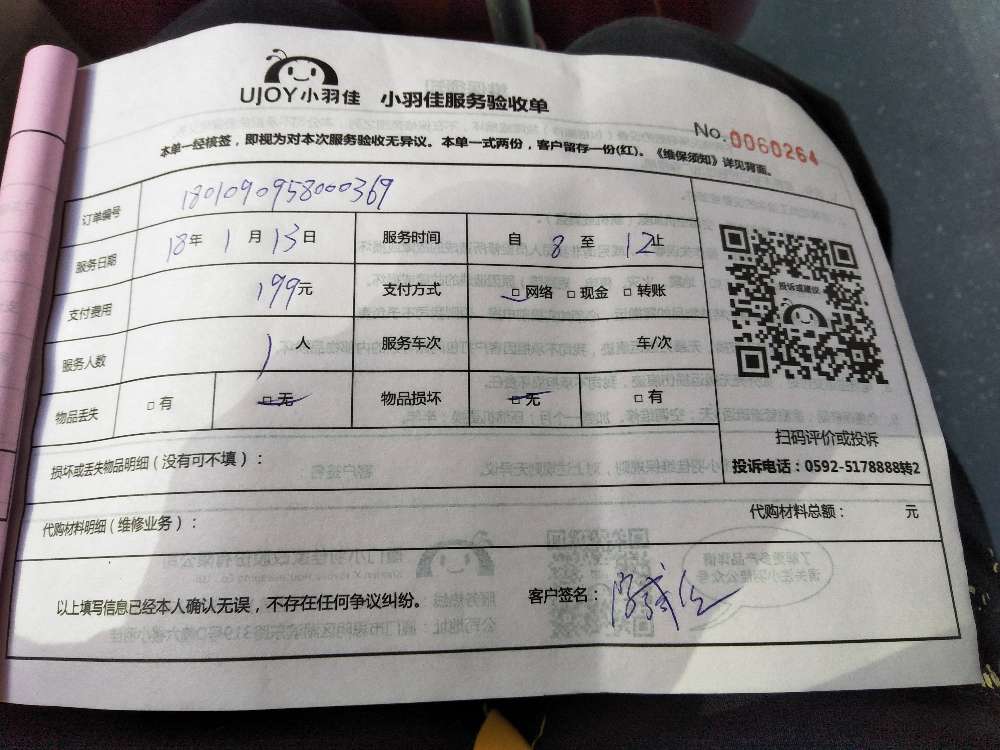 UJOY小羽佳 小羽佳服务验收单
No. 0060264
本单一经核签，即视为对本次服务验收无异议。本单一式两份，客户留存一份(红)。《维保须知》详见背面。
订单编号 1801090958000369
服务日期 18年 1月 13日 服务时间 自 8 至 12止
支付费用 199元 支付方式 □网络 □现金 □转账
服务人数 1人 服务车次 车/次
物品丢失 □有 □无 物品损坏 □无 □有
投诉或建议
扫码评价或投诉
投诉电话：0592-5178888转2
损坏或丢失物品明细（没有可不填）：
代购材料明细（维修业务）： 代购材料总额： 元
以上填写信息已经本人确认无误，不存在任何争议纠纷。 客户签名：